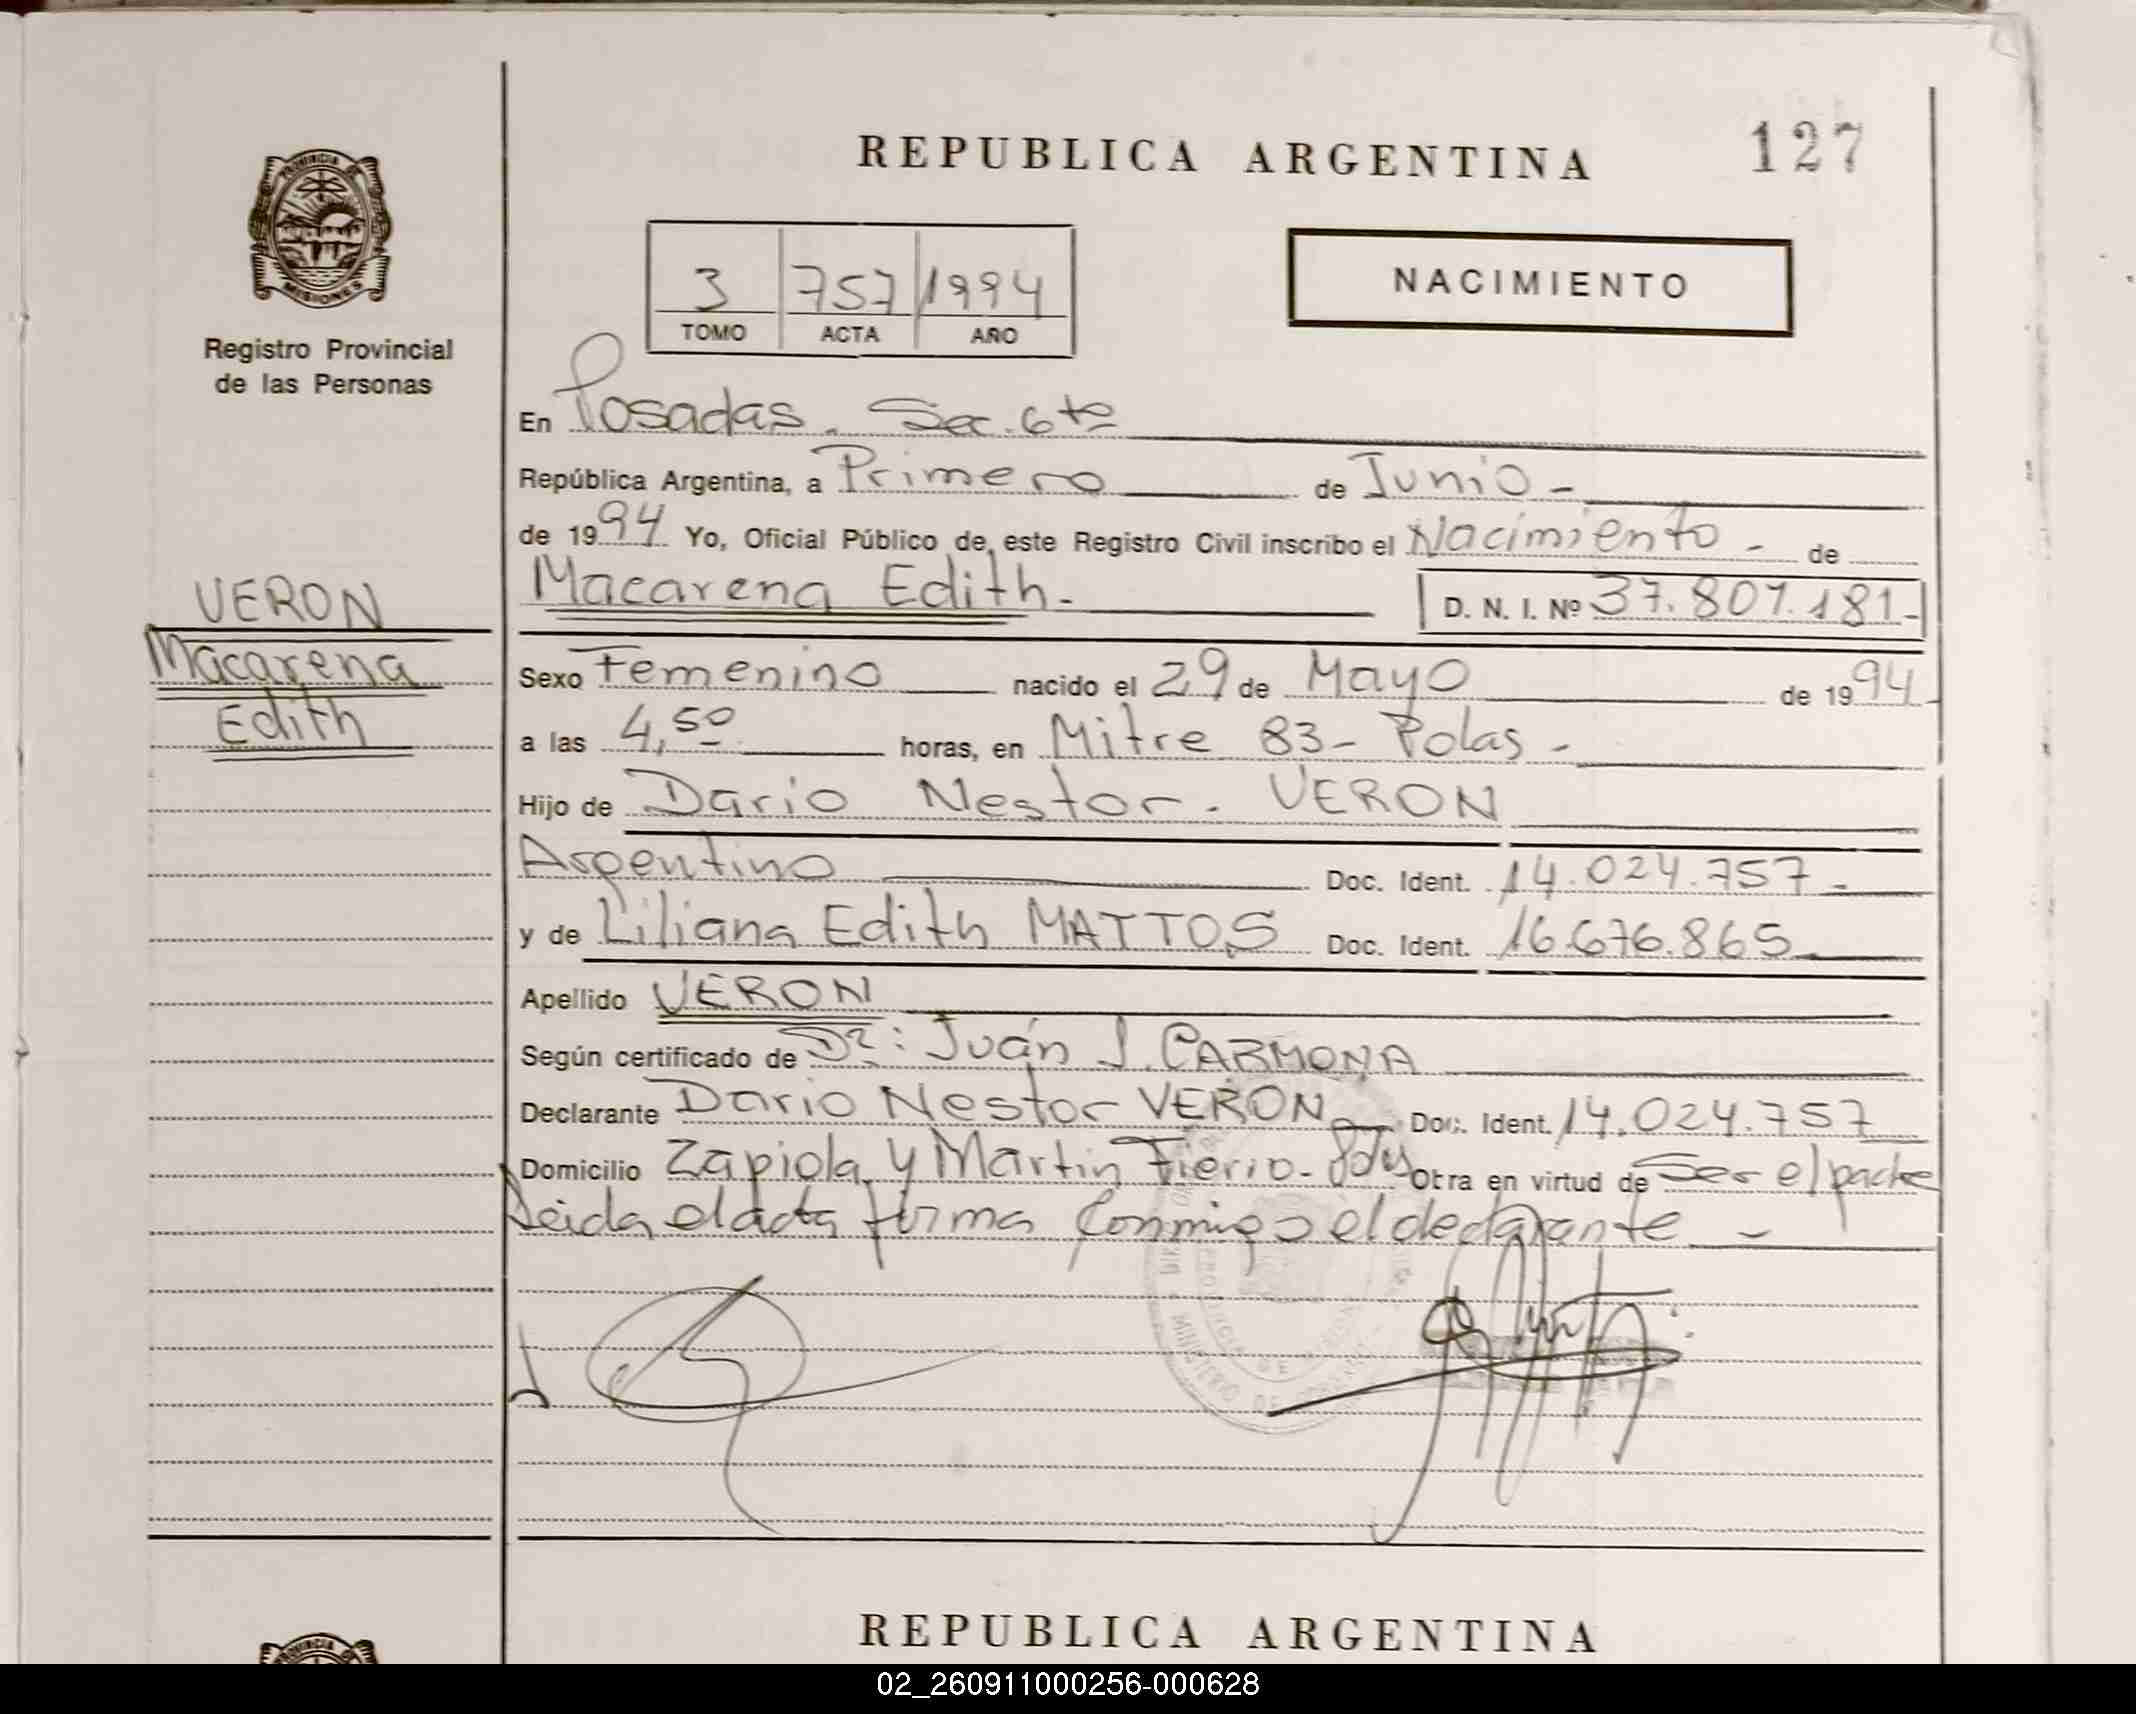 REPUBLICA ARGENTINA
127
PROVINCIA DE
MISIONES
Registro Provincial
de las Personas
3 757 1994
TOMO ACTA AÑO
NACIMIENTO
En Posadas. Sec. 6ta
República Argentina, a Primero de Junio -
de 1994 Yo, Oficial Público de este Registro Civil inscribo el Nacimiento - de
Macarena Edith.- D. N. I. Nº 37.807.181-
VERON
Macarena
Edith
Sexo Femenino nacido el 29 de Mayo de 1994
a las 4,50 horas, en Mitre 83- Pdas -
Hijo de Dario Nestor. VERON
Argentino Doc. Ident. 14.024.757-
y de Liliana Edith MATTOS Doc. Ident. 16.676.865
Apellido VERON
Según certificado de Dr: Juán J. CARMONA
Declarante Dario Nestor VERON Doc. Ident. 14.024.757
Domicilio Zapiola y Martin Fierro- Otra en virtud de Ser el padre
Leida el acta firma conmigo el declarante -
REPUBLICA ARGENTINA
02_260911000256-000628